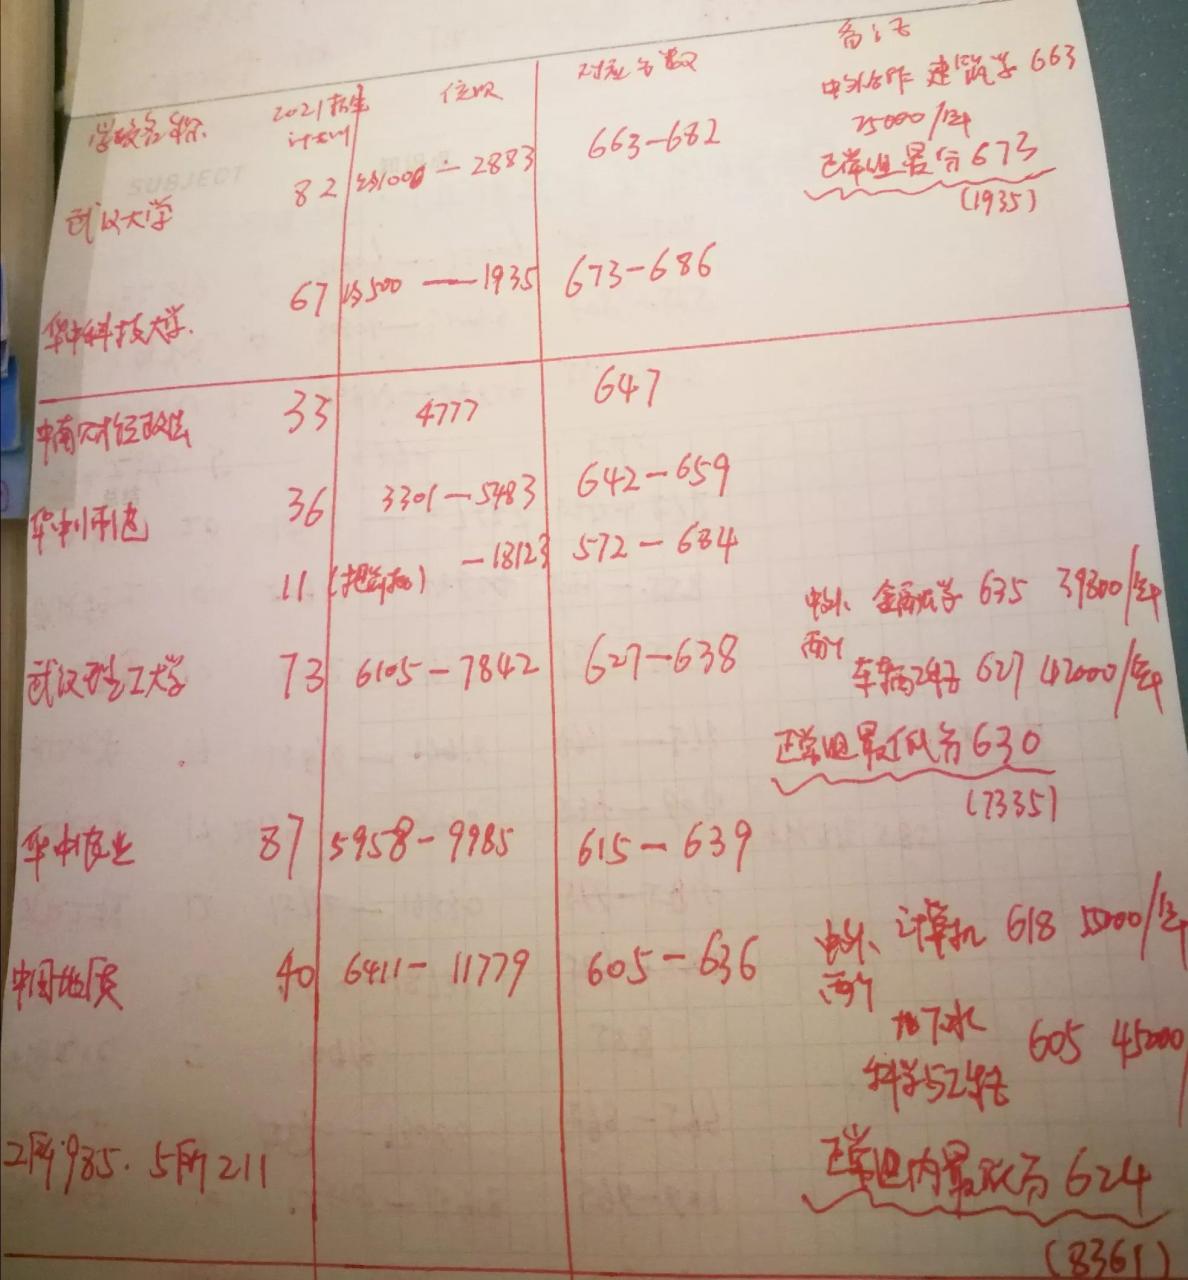 学校名称 2021招生计划 位次 对应分数 备注
武汉大学 82 约1000-2883 663-682 中外合作 建筑学 663
25000/年
正常组最低分673
(1935)
华中科技大学. 67 约500 —1935 673-686
中南财经政法 33 4777 647
华中师范 36 3301-5483 642-659
11 -18123 572-634
武汉理工大学 73 6105-7842 627-638 中外 金融数学 635 39800/年
两个 车辆工程 627 42000/年
正常组最低分630
(7335)
华中农业 87 5958-9985 615-639
中国地质 40 6411-11779 605-636 中外 计算机 618 55000/年
两个 地下水
科学与工程 605 45000
2所985. 5所211 正常组内最低分624
(8361)
SUBJECT